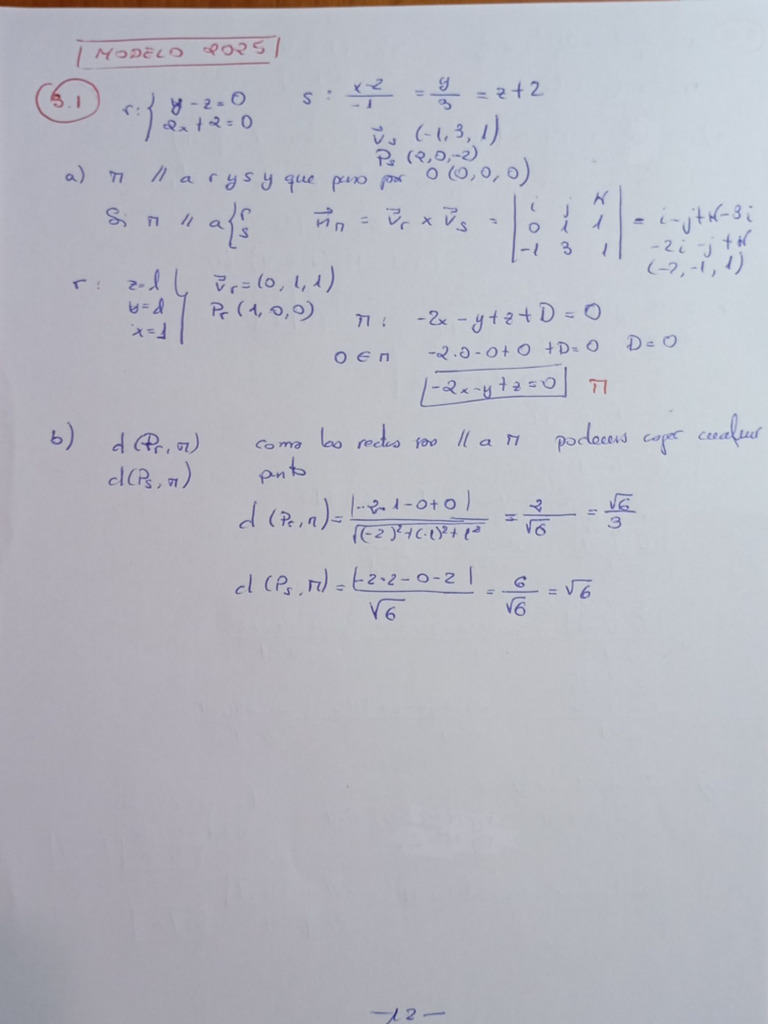 MODELO 2025
3.1 r: { y - z = 0 s: x-2/-1 = y/3 = z+2
2x + 2 = 0
v⃗s (-1, 3, 1)
Ps (2, 0, -2)
a) π // a r y s y que pasa por O (0, 0, 0)
Si π // a { r s n⃗π = v⃗r × v⃗s = | i j k | = i - j + k - 3i
| 0 1 1 | -2i - j + k
| -1 3 1 | (-2, -1, 1)
r: z = λ v⃗r = (0, 1, 1)
y = λ Pr (1, 0, 0)
x = 1 π: -2x - y + z + D = 0
O ∈ π -2·0 - 0 + 0 + D = 0 D = 0
-2x - y + z = 0 π
b) d (Pr, π) como las rectas son // a π podemos coger cualquier
d (Ps, π) punto
d (Pr, π) = |-2·1 - 0 + 0| / √((-2)² + (-1)² + 1²) = 2/√6 = √6/3
d (Ps, π) = |-2·2 - 0 - 2| / √6 = 6/√6 = √6
-12-